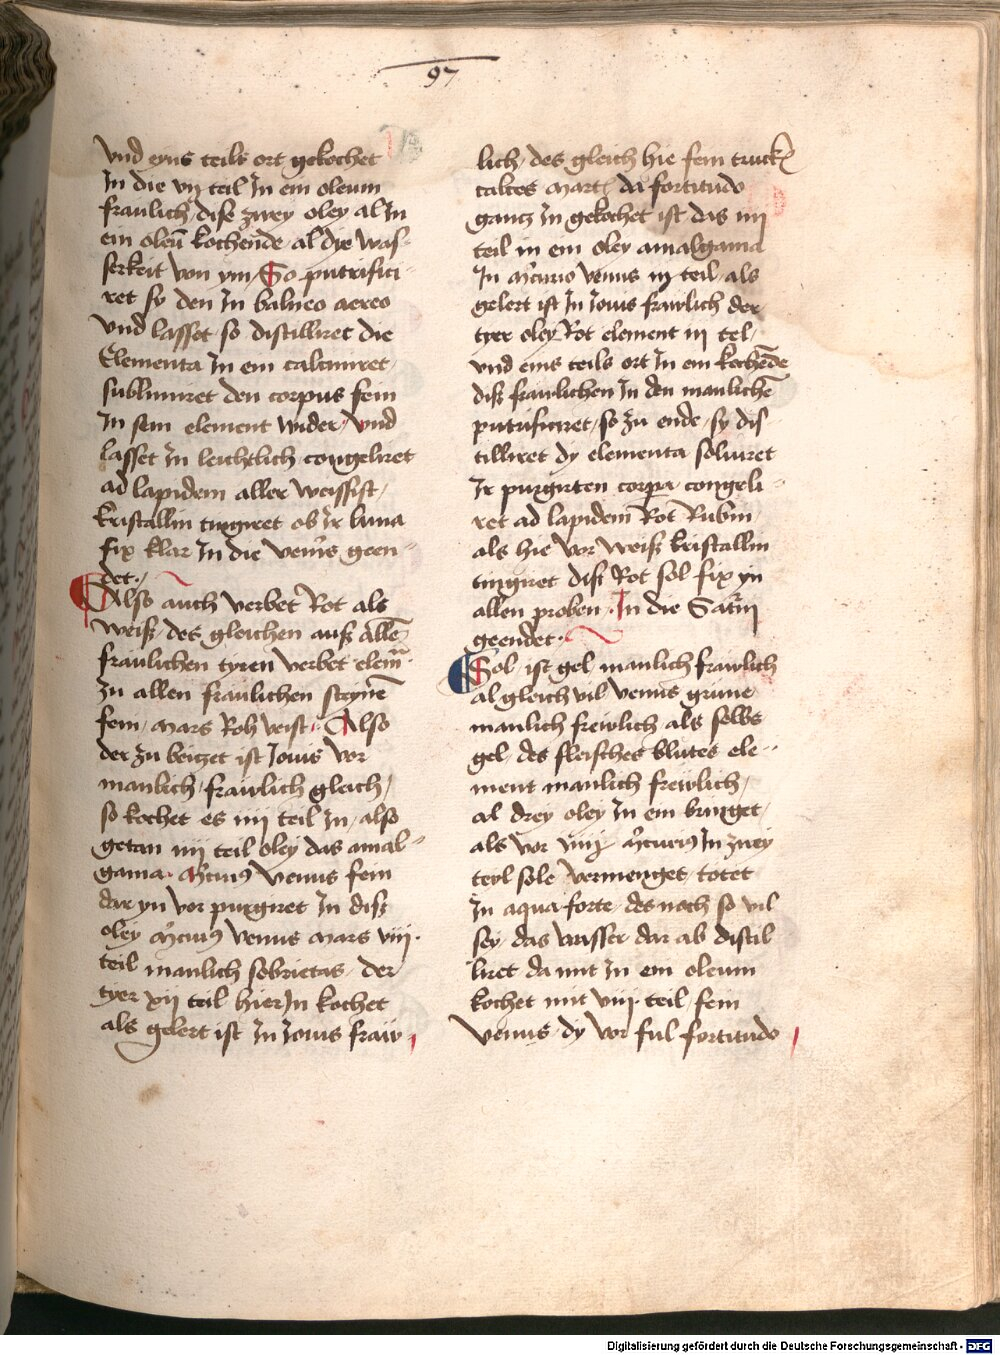 97
vnd eyns teils ort gekochet
In die vij teil In ein oleum
fraulich, dise zwey oley al In
ein oleū kochende, al dye was-
serkeit von ym, So putrifici-
ret sy den In balneo aereo
vnd lasset so distilliret die
Elementa In em calciniret,
sublimiret den corpus sein
In sein element wider, vnd
lasset In leichtlich congeliret
ad lapidem aller weissist,
kristallin tingiret ob Ir luna
fix klar In die venus geen-
det.
Also auch verbet Rot als
weiß, des gleichen auß allē
fraulichen tyren verbet elem
zu allen fraulichen steynē
sein, mars Roh weist, Also
der zu beitzet ist Jouis vor
manlich, frawlich gleich,
so kochet es iiij teil In, also
getan iiij teil oley das amal-
gama mercurius venus sein
dar yn vor purgiret In diß
oley mercurius venus mars viij
teil manlich sobrietas, der
tyer xij teil hier In kochet
als gelert ist In Jouis fraw
lich, des gleich hie sein truckē
calces martē da fortitudo
gantz In gekochet ist das iiij
teil in ein oley amalgama
In mercurio venus iij teil, als
gelert ist In Jouis frawlich der
tyer oley Rot element iij tel,
vnd eins teils ort In ein kochēde
diß fraulichen In den manlichē
putrificiret, so zu ende, sy dis-
tilliret dy elementa soluiret
Ir purgirten corpora congeli-
ret ad lapidem Rot Rubin,
als hie vor weiß kristallin
tingiret diß Rot sol fix yn
allen proben, In die Saturnij
geendet.
Sol, ist gel manlich frawlich
al gleich vil venus grüne
manlich freiwlich als selbs
gel, des fleisches blutes ele-
ment manlich freiwlich,
al drey oley In ein bringet,
als vor viiij mercurius In zwey
teyl sole vermenget, totet
In aqua forte, des noch so vil
sey, das wasser dar ab distil
liret da mit In ein oleum
kochet mit viij teil sein
venus, dy vor ful fortitudo
Digitalisierung gefördert durch die Deutsche Forschungsgemeinschaft - DFG